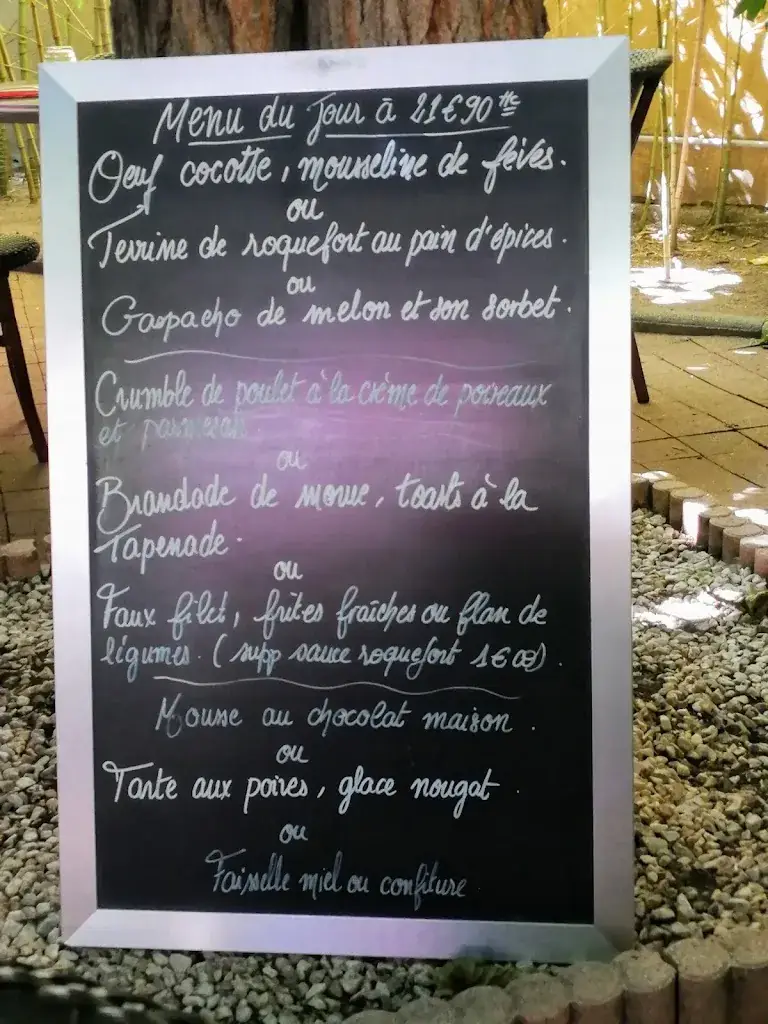 Menu du Jour à 21€90 ttc
Oeuf cocotte, mousseline de fèves.
ou
Terrine de roquefort au pain d'épices.
ou
Gaspacho de melon et son sorbet.
Crumble de poulet à la crème de poireaux
et parmesan.
ou
Brandade de morue, toasts à la
Tapenade.
ou
Faux filet, frites fraîches ou flan de
légumes. (supp sauce roquefort 1€00).
Mousse au chocolat maison.
ou
Tarte aux poires, glace nougat.
ou
Faisselle miel ou confiture